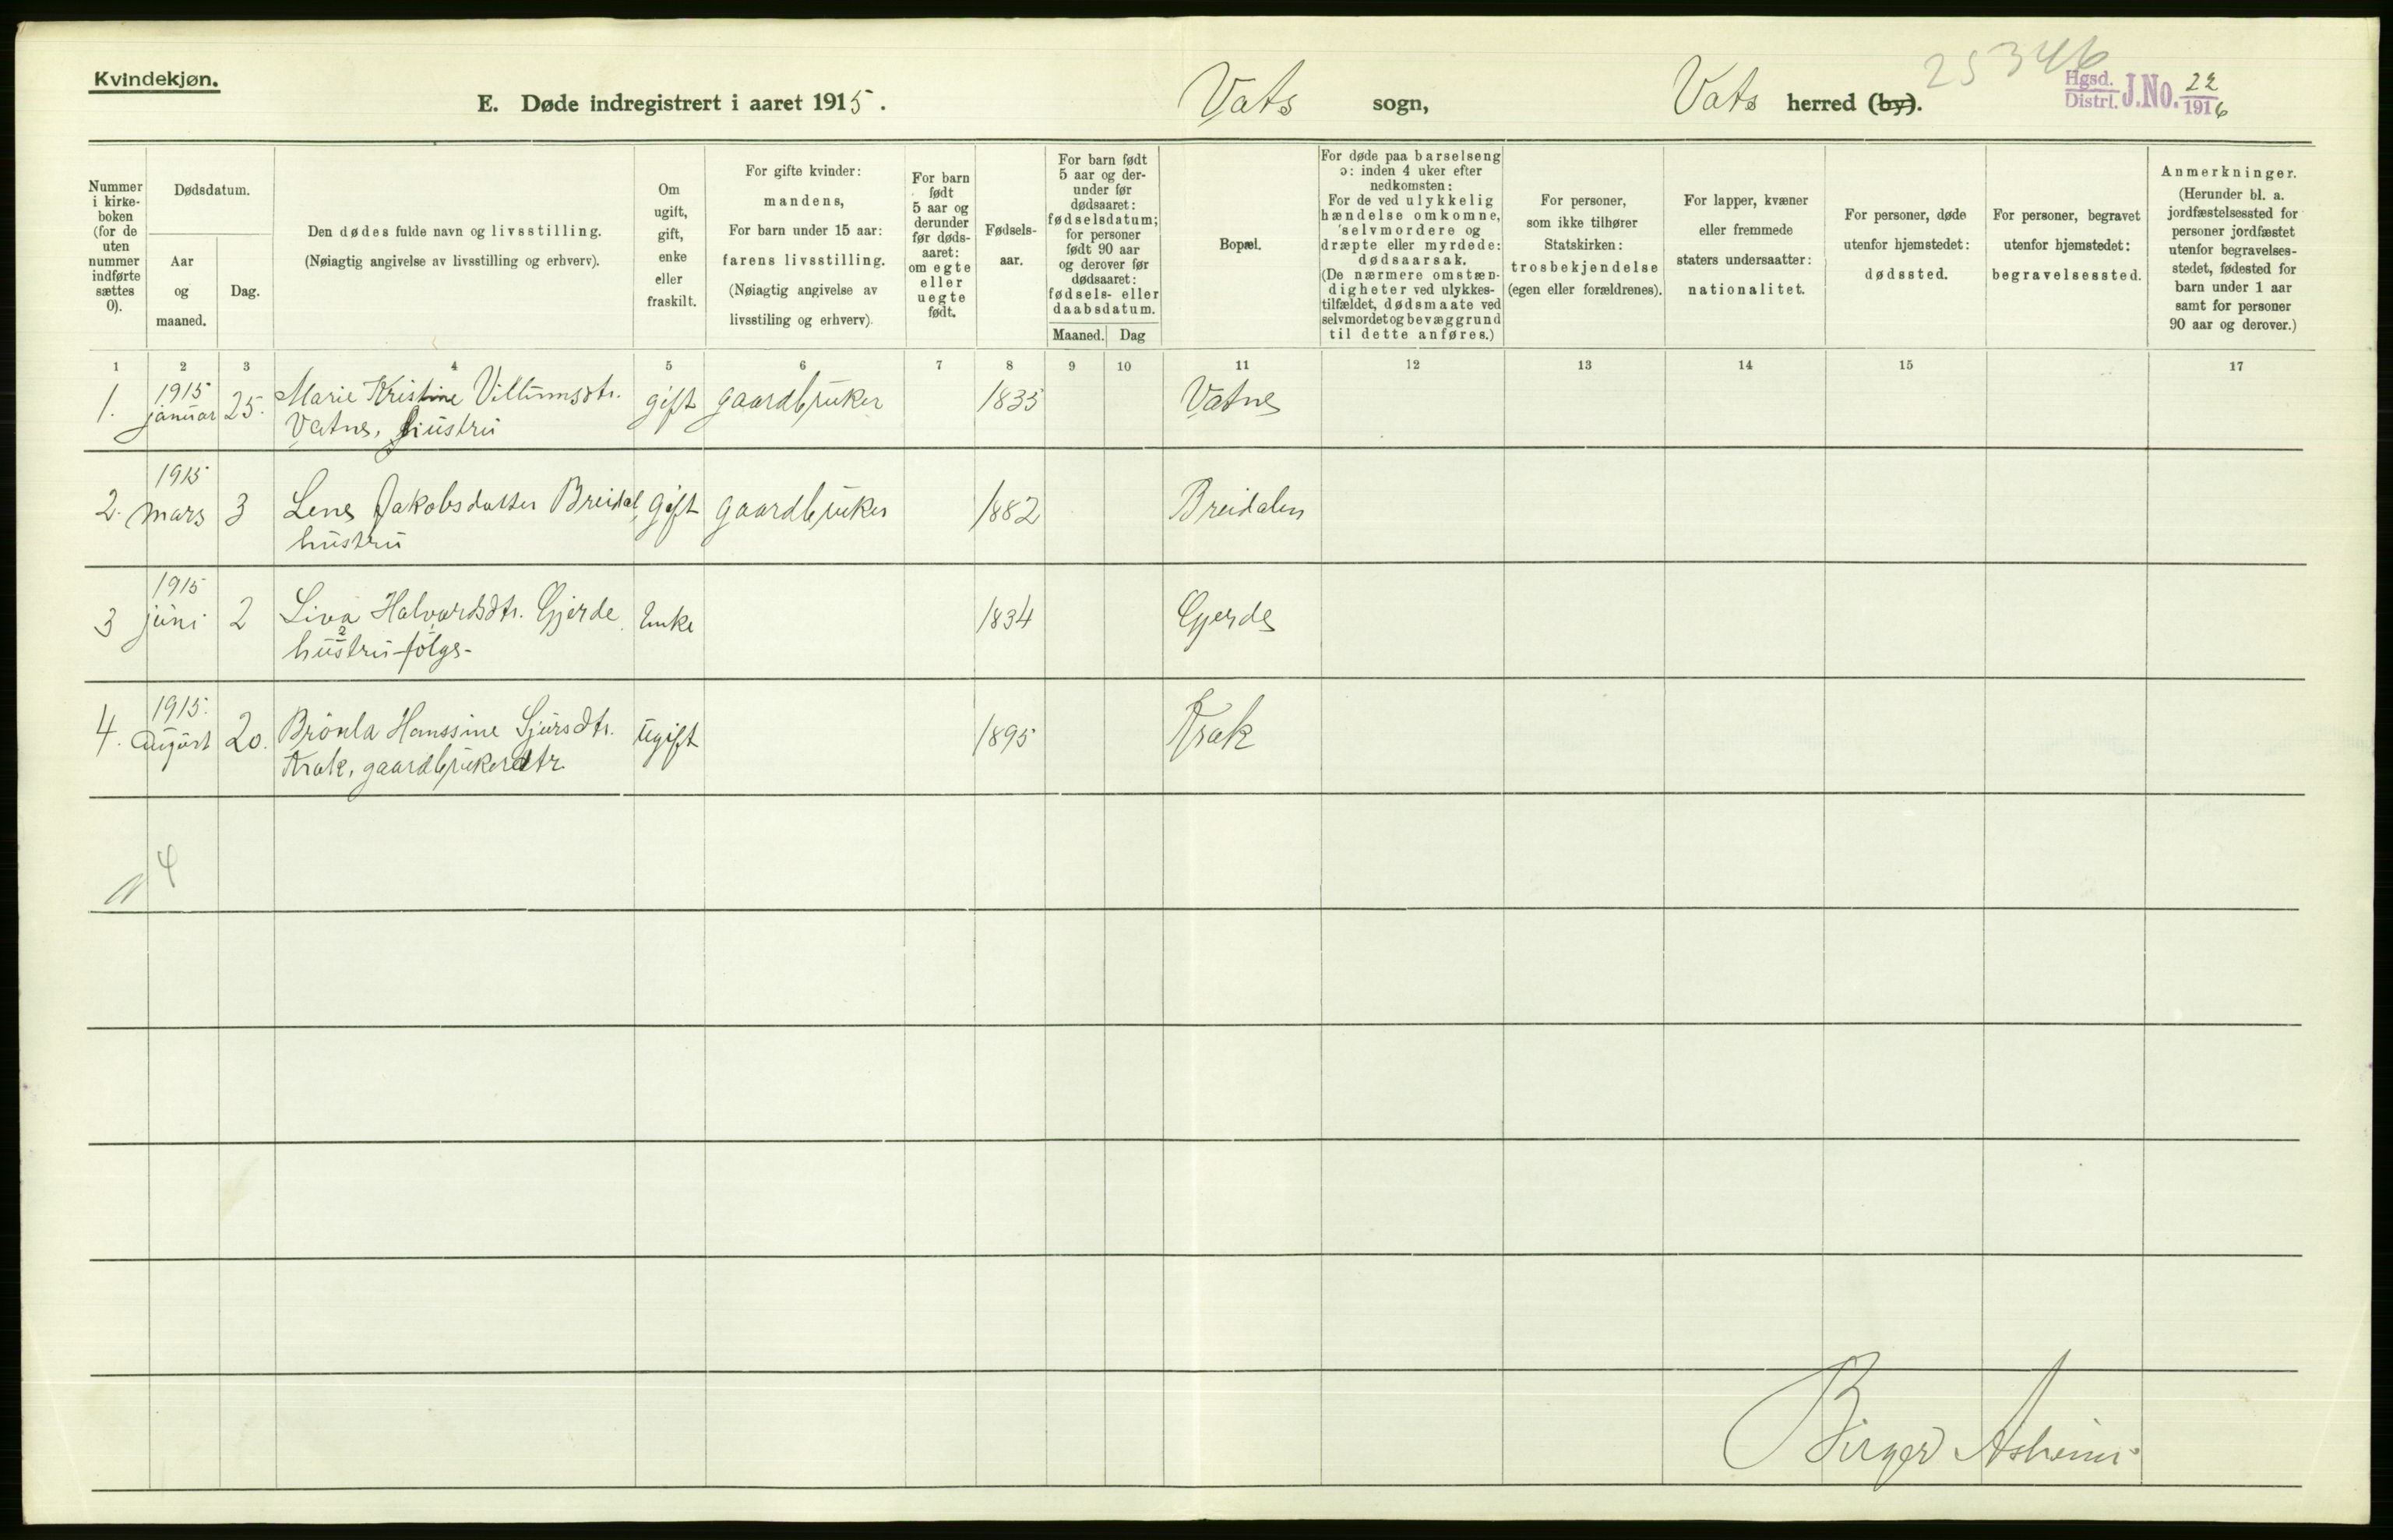 Kvindekjøn.
E. Døde indregistrert i aaret 1915.
Vats sogn,
Vats herred (by).
25346
Hgsd. Distrl. J.No. 22 1916
Nummer i kirkeboken (for de uten nummer indførte sættes 0).
Dødsdatum.
Aar og maaned.
Dag.
Den dødes fulde navn og livsstilling.
(Nøiagtig angivelse av livsstilling og erhverv).
Om ugift, gift, enke eller fraskilt.
For gifte kvinder: mandens,
For barn under 15 aar: farens livsstilling.
(Nøiagtig angivelse av livsstiling og erhverv).
For barn født 5 aar og derunder før dødsaaret: om egte eller uegte født.
Fødselsaar.
For barn født 5 aar og derunder før dødsaaret: fødselsdatum; for personer født 90 aar og derover før dødsaaret: fødsels- eller daabsdatum.
Maaned. Dag
Bopæl.
For døde paa barselseng ɔ: inden 4 uker efter nedkomsten:
For de ved ulykkelig hændelse omkomne, selvmordere og dræpte eller myrdede: dødsaarsak.
(De nærmere omstændigheter ved ulykkestilfældet, dødsmaate ved selvmordet og bevæggrund til dette anføres.)
For personer, som ikke tilhører Statskirken: trosbekjendelse (egen eller forældrenes).
For lapper, kvæner eller fremmede staters undersaatter: nationalitet.
For personer, døde utenfor hjemstedet: dødssted.
For personer, begravet utenfor hjemstedet: begravelsessted.
Anmerkninger.
(Herunder bl. a. jordfæstelsessted for personer jordfæstet utenfor begravelsesstedet, fødested for barn under 1 aar samt for personer 90 aar og derover.)
1 2 3 4 5 6 7 8 9 10 11 12 13 14 15 17
1. 1915 januar 25. Marie Kristine Villumsdtr. gift gaardbruker 1835 Vatne
Vatne, hustru
2. 1915 mars 3 Lene Jakobsdatter Breidal, gift gaardbruker 1882 Breidalen
hustru
3 1915 juni 2 Liva Halvardsdtr. Gjerde. Enke 1834 Gjerde
hustru-følge-
4. 1915. august 20. Hanssine Sjursdtr. ugift 1895 Krak
Krak, gaardbrukerdtr.
4
Birger